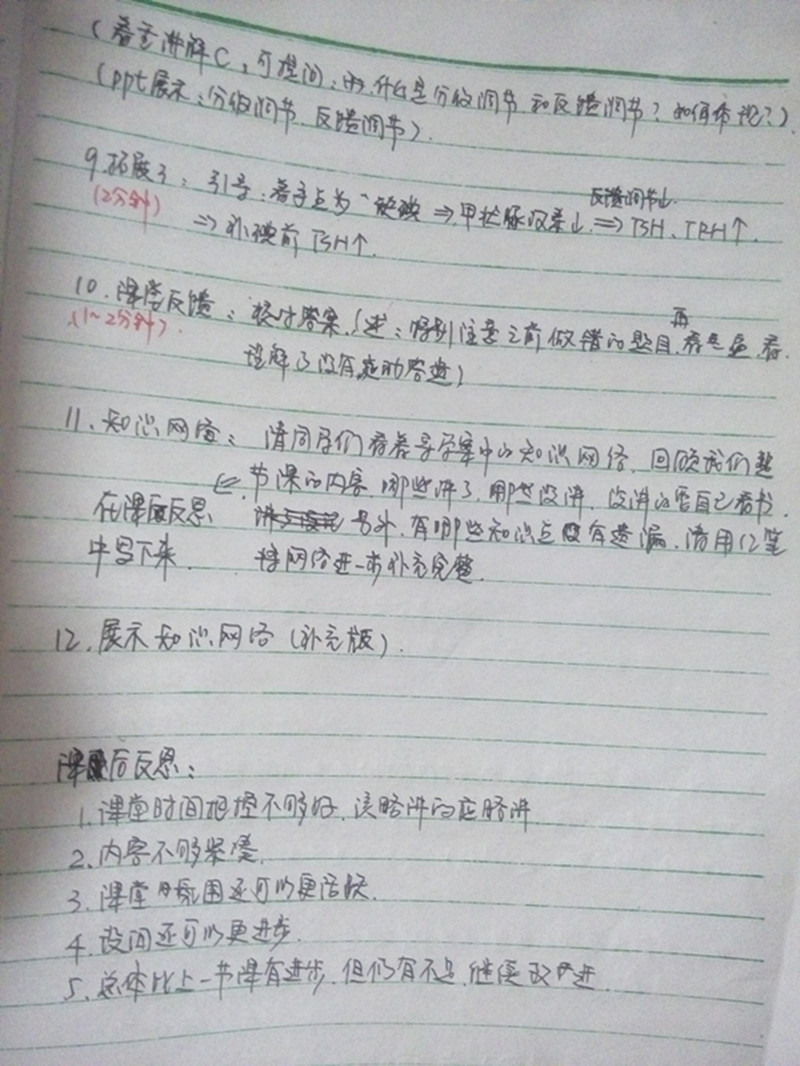 (着重讲解C,可提问:什么是分级调节和反馈调节?如何体现?)
(ppt展示:分级调节、反馈调节).
反馈调节↓
9.拓展3:引导:着手点为“缺碘⇒甲状腺激素↓⇒TSH、TRH↑.
(2分钟)
⇒补碘前TSH↑.
10.课堂反馈:核对答案.(述:特别注意之前做错的题目,再看一遍,看
(1~2分钟).
理解了没有)
11.知识网络:请同学们看着导学案中的知识网络,回顾我们整
节课的内容,哪些讲了,哪些没讲,没讲的要自己看书.
在课后反思 另外,有哪些知识点没有遗漏,请用红笔
中写下来 将网络进一步补充完整.
12.展示知识网络(补充版).
课后反思:
1.课堂时间把握不够好,该略讲的应略讲
2.内容不够紧凑.
3.课堂氛围还可以更活跃.
4.设问还可以更进步.
5.总体比上一节课有进步,但仍有不足,继续改进.